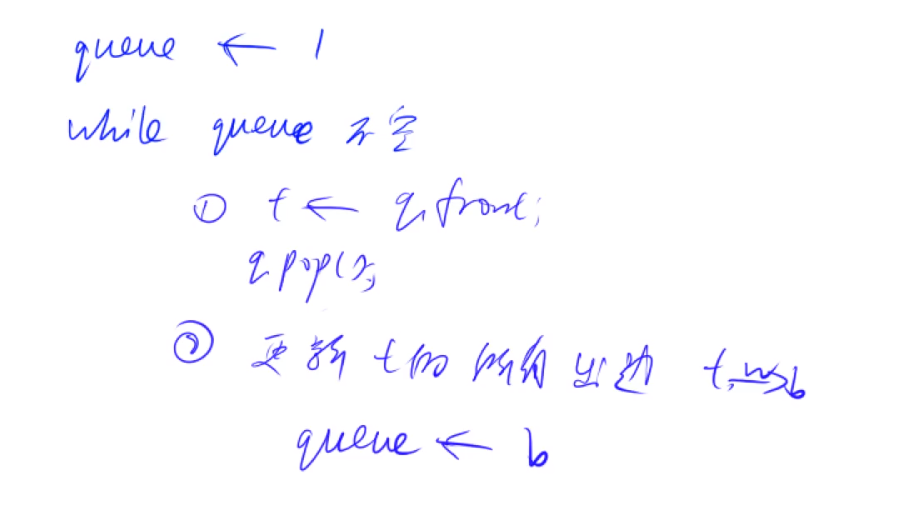 queue ← 1
while queue 不空
① t ← q.front;
q.pop();
② 更新 t 的所有出边 t, w→b
queue ← b